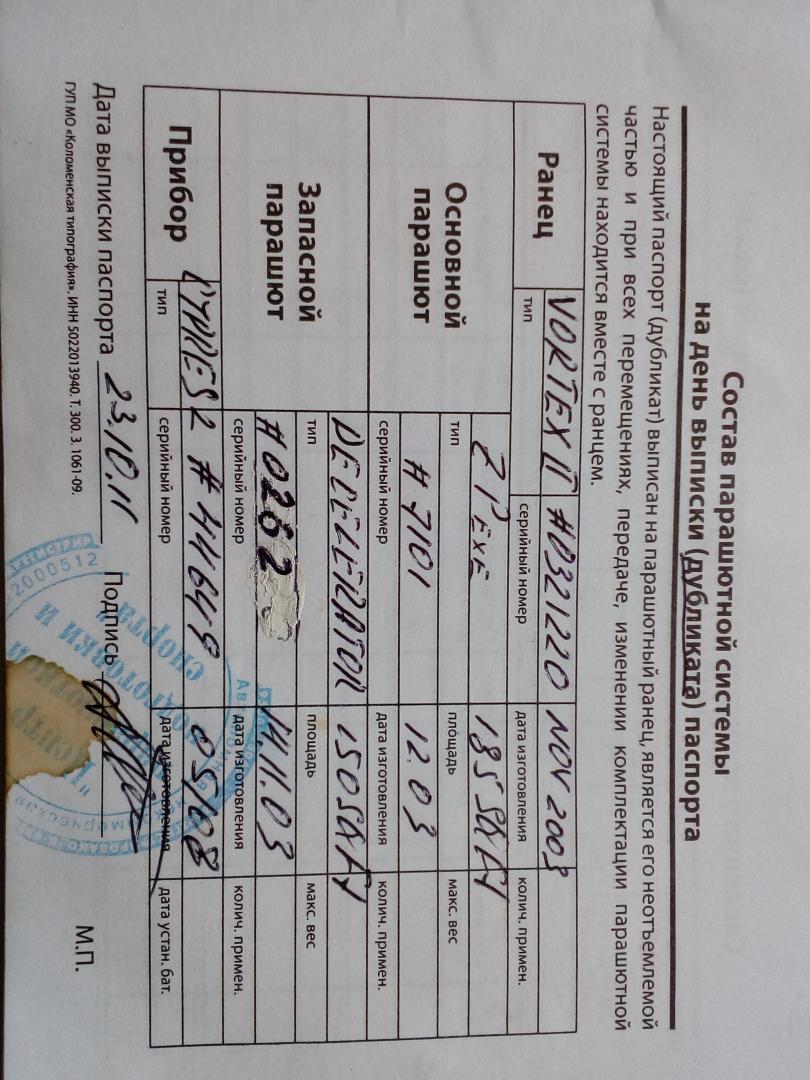 Состав парашютной системы
на день выписки (дубликата) паспорта
Настоящий паспорт (дубликат) выписан на парашютный ранец, является его неотъемлемой
частью и при всех перемещениях, передаче, изменении комплектации парашютной
системы находится вместе с ранцем.
Ранец
VORTEX II #0321220 NOV 2003
тип серийный номер дата изготовления колич. примен.
Основной парашют
ZP EXE 185 SQ FT
тип площадь макс. вес
# 7101 12.03
серийный номер дата изготовления колич. примен.
Запасной парашют
DECELERATOR 150 SQ FT
тип площадь макс. вес
#0262 14.11.03
серийный номер дата изготовления колич. примен.
Прибор
CYPRES 2 # 44649 05/08
тип серийный номер дата изготовления дата устан. бат.
Дата выписки паспорта 23.10.11 Подпись М.П.
ГУП МО «Коломенская типография». ИНН 5022013940. Т. 300. З. 1061-09.
подготовки и
спорта
2000512